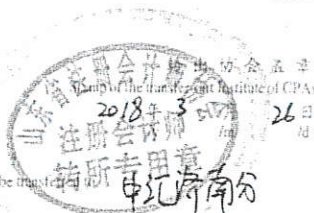 转出协会盖章
Stamp of the transfer-out Institute of CPAs
2018年 3月 26日
/m /d
山东省注册会计师协会
注册会计师
转所专用章
be transferred to
中汇济南分